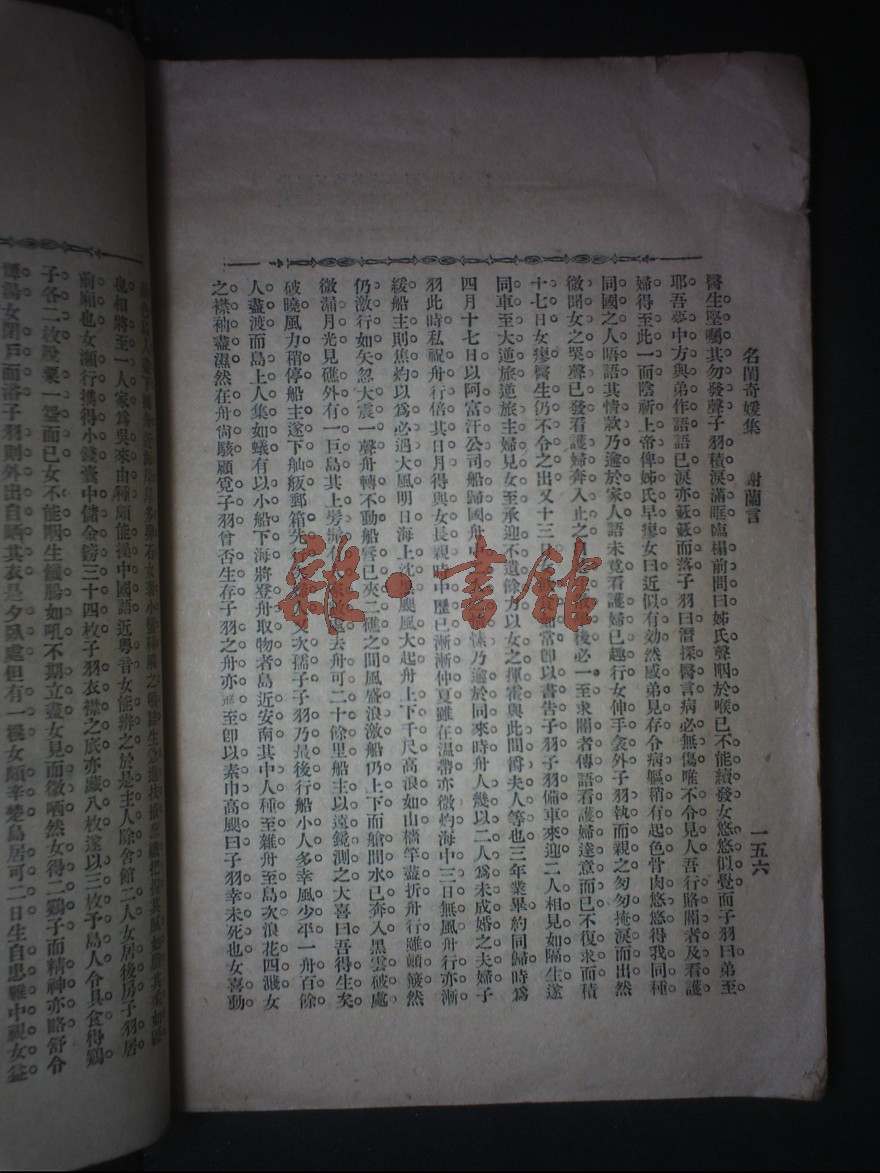 名閨奇媛集　謝蘭言　一五六
醫生堅囑其勿發聲子羽積淚滿眶臨榻前問曰姊氏聲咽於喉已不能續發女悠悠似覺而子羽曰弟至
耶吾夢中方與弟作語語已淚亦簌簌而落子羽曰潛探醫言病必無傷唯不令見人吾行賂閽者及看護
婦得至此一面陰祈上帝俾姊氏早瘳女曰近似有効然感弟見存令病軀稍有起色骨肉悠悠得我同種
同國之人晤語其情款乃逾於家人語未竟看護婦已趣行女伸手衾外子羽執而親之匆匆掩淚而出然
微聞女之哭聲已發看護婦奔入止之 後必一至求閽者傳語看護婦達意而已不復求面積
十七日女瘳醫生仍不令之出又十三 如當卽以書告子羽子羽備車來迎二人相見如隔生遂
同車至大逆旅逆旅主婦見女至承迎不遺餘力以女之揮霍與此間爵夫人等也三年業畢約同歸時爲
四月十七日以阿富汗公司船歸國舟中 愫乃逾於同來時舟人幾以二人爲未成婚之夫婦子
羽此時私祝舟行倍其日月得與女長親時中歷已漸漸仲夏雖在溫帶亦微灼海中三日無風舟行亦漸
緩船主則焦灼以爲必遇大風明日海上 颶風大起舟上下千尺高浪如山檣竿盡折舟行雖頓簸然
仍激行如矢忽大震一聲舟轉不動船脣已夾二礁之間風盛浪激船仍上下而艙間水已奔入黑雲破處
微漏月光見礁外有一巨島其上 處去舟可二十餘里船主以遠鏡測之大喜曰吾得生矣
破曉風力稍停船主遂下舢舨郵箱先 人又次孺子子羽乃最後行船小人多幸風少平一舟百餘
人盡渡而島上人集如蟻有以小船下海將登舟取物者島近安南其中人種至雜舟至島次浪花四濺女
之襟袖盡濕然在舟尙駭顧覓子羽曾否生存子羽之舟亦 至卽以素巾高颺曰子羽幸未死也女喜動
雜・書館
也相將至一人家爲吳來由種頗能操中國語近粤音女能辨之於是主人除舍館二人女居後房子羽居
前廂也女瀕行攜得小錢囊中儲金鎊三十四枚子羽衣襟之底亦藏八枚遂以三枚予島人令具食得鷄
子各二枚 粟一盌而已女不能咽生 腸如吼不期立盡女見而微哂然女得二鷄子而精神亦略舒令
湯女閉戶而浴子羽則外出自晒其衣是夕臥處但有一 女頗辛楚島居可二日生自患難中視女益